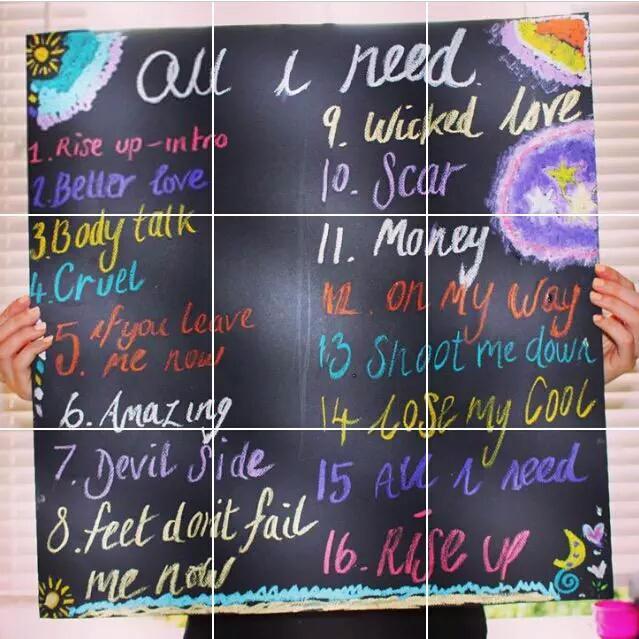 all i need.
1. Rise up-intro
2. Better love
3. Body talk
4. Cruel
5. if you leave
me now
6. Amazing
7. Devil side
8. feet don't fail
me now
9. Wicked love
10. Scar
11. Money
12. on my way
13 Shoot me down
14 Lose my Cool
15 All i need
16. Rise up